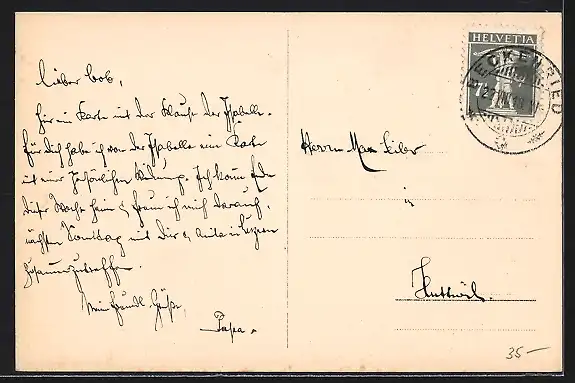 Lieber Bob,
Hier ein Karte mit der Klause der Isabelle.
Für Dich habe ich von der Isabelle ein Karte
mit einer persönlichen Widmung. Ich komme Ende
dieser Woche heim & freue ich mich darauf,
nächsten Sonntag mit Dir & Anita in Luzern
zusammenzutreffen.
Mein freundl. Grüsse,
Papa.
HELVETIA
7½
BECKENRIED
Herrn Max Seiler
in
Huttwil.
35-